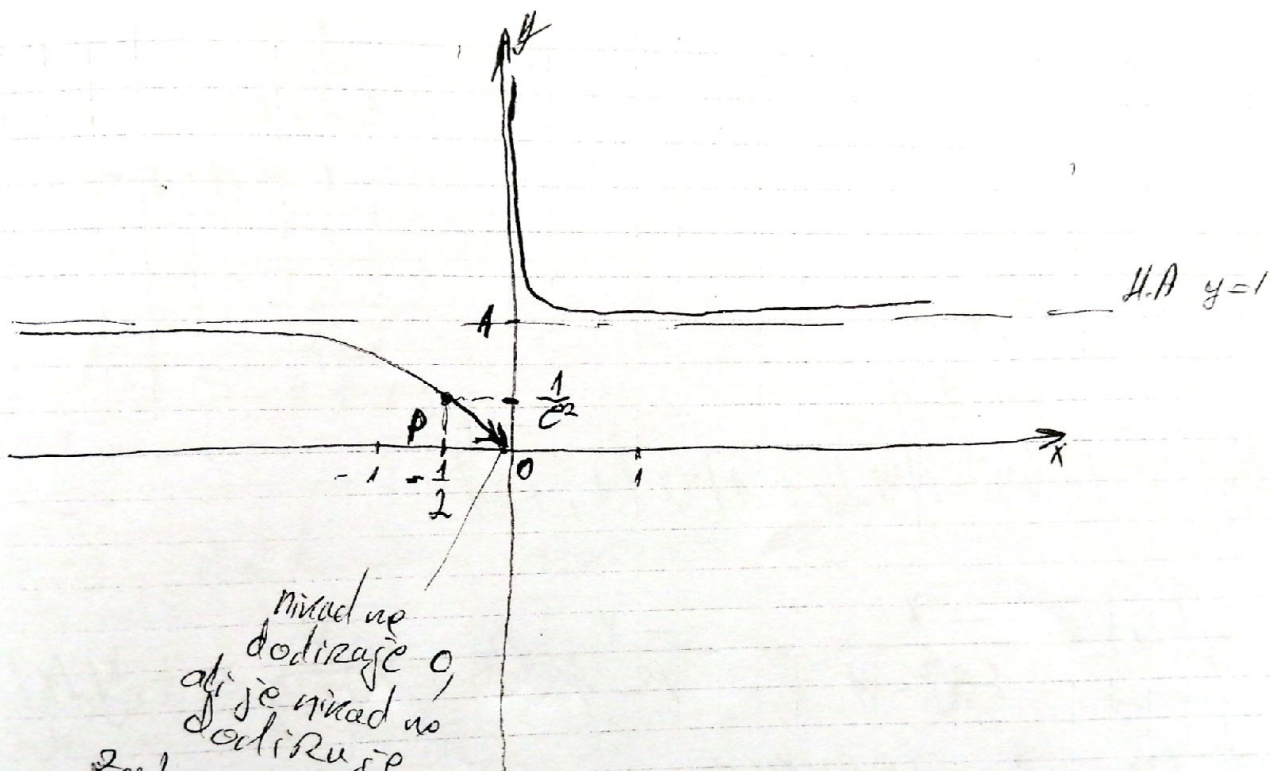 y
H.A y=1
1
1/e²
P
-1 -1/2 0 1 x
nikad ne
dodiruje 0,
ali je nikad ne
dodiruje